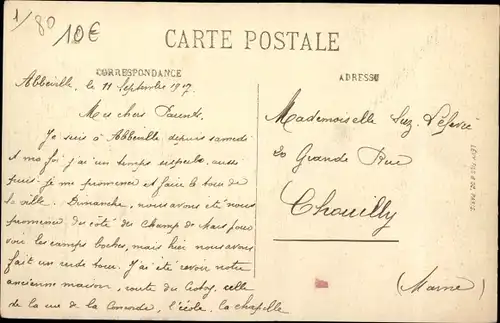 1/80
10€
CARTE POSTALE
CORRESPONDANCE
ADRESSE
Abbeville, le 11 Septembre 1917
Mes chers Parents.
Je suis à Abbeville depuis samedi
et ma foi j'ai un temps superbe, aussi
puis-je me promener et faire le tour de
la ville. Dimanche, nous avons été nous
promener du côté du Champ de Mars pour
voir les camps boches, mais hier nous avons
fait un rude tour. J'ai été revoir notre
ancienne maison, route du Crotoy, celle
de la rue de la Concorde, l'école, la chapelle
Mademoiselle Suz.
20 Grande Rue
Chouilly
(Marne)